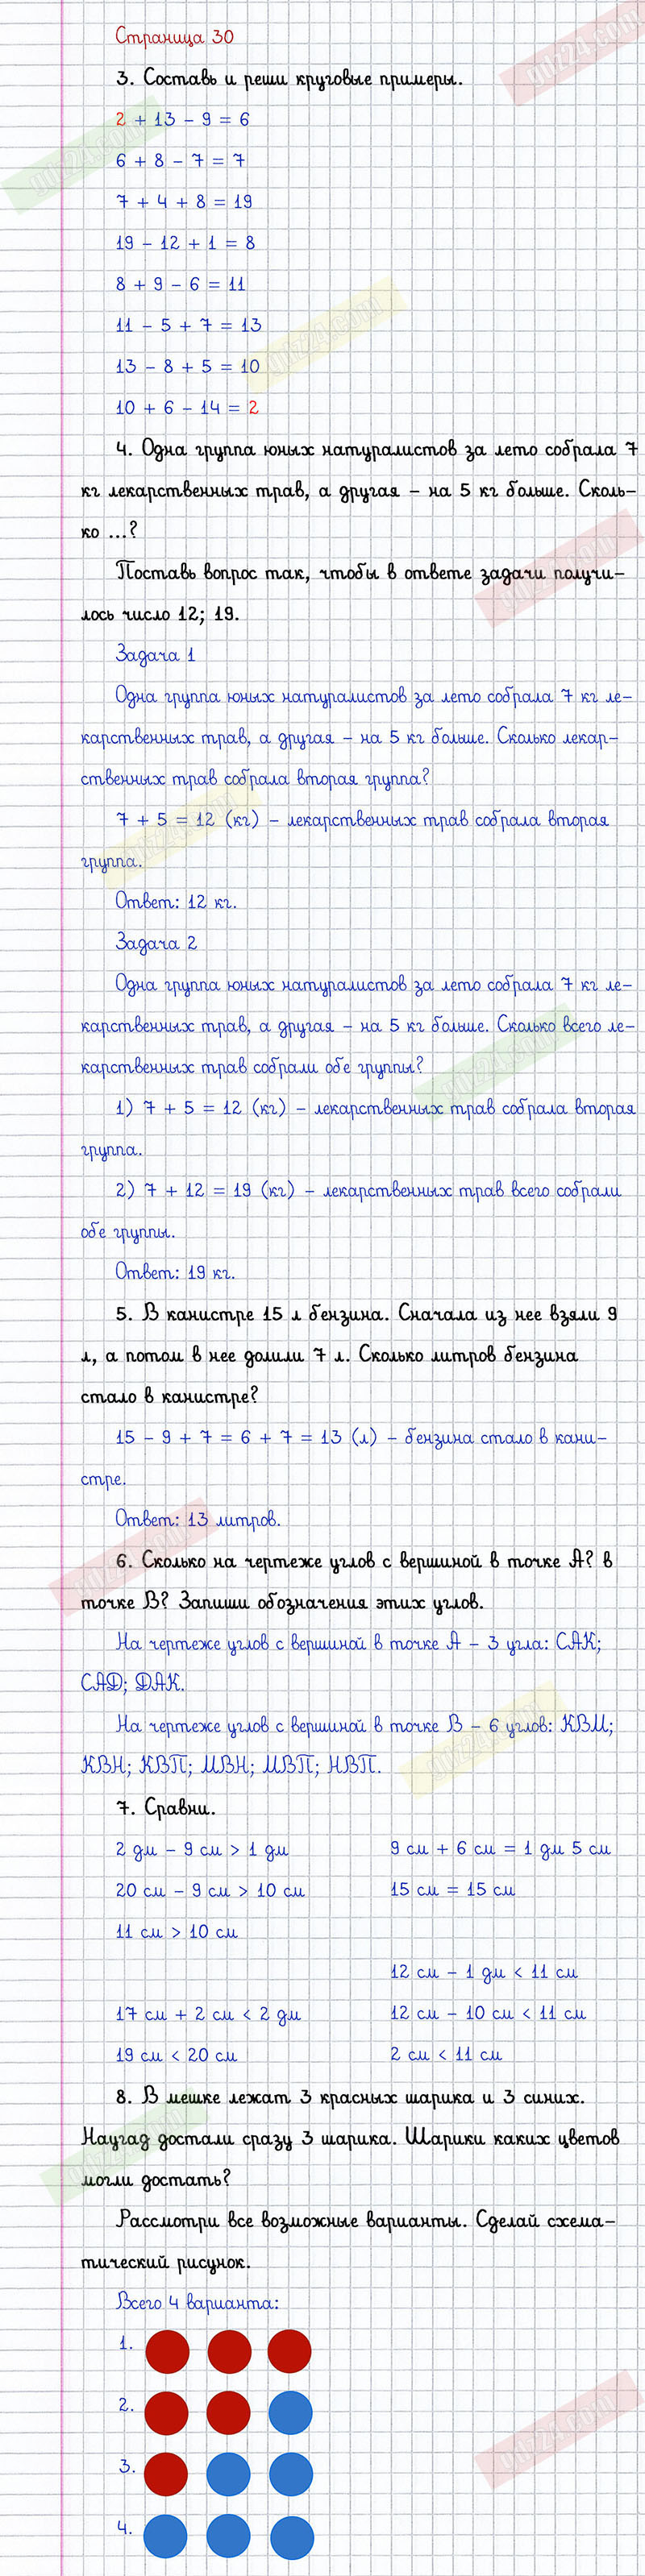 Страница 30
3. Составь и реши круговые примеры.
2 + 13 – 9 = 6
6 + 8 – 7 = 7
7 + 4 + 8 = 19
19 – 12 + 1 = 8
8 + 9 – 6 = 11
11 – 5 + 7 = 13
13 – 8 + 5 = 10
10 + 6 – 14 = 2
4. Одна группа юных натуралистов за лето собрала 7
кг лекарственных трав, а другая – на 5 кг больше. Сколь–
ко ...?
Поставь вопрос так, чтобы в ответе задачи получи–
лось число 12; 19.
Задача 1
Одна группа юных натуралистов за лето собрала 7 кг ле–
карственных трав, а другая – на 5 кг больше. Сколько лекар–
ственных трав собрала вторая группа?
7 + 5 = 12 (кг) – лекарственных трав собрала вторая
группа.
Ответ: 12 кг.
Задача 2
Одна группа юных натуралистов за лето собрала 7 кг ле–
карственных трав, а другая – на 5 кг больше. Сколько всего ле–
карственных трав собрали обе группы?
1) 7 + 5 = 12 (кг) – лекарственных трав собрала вторая
группа.
2) 7 + 12 = 19 (кг) – лекарственных трав всего собрали
обе группы.
Ответ: 19 кг.
5. В канистре 15 л бензина. Сначала из нее взяли 9
л, а потом в нее долили 7 л. Сколько литров бензина
стало в канистре?
15 – 9 + 7 = 6 + 7 = 13 (л) – бензина стало в кани–
стре.
Ответ: 13 литров.
6. Сколько на чертеже углов с вершиной в точке А? в
точке В? Запиши обозначения этих углов.
На чертеже углов с вершиной в точке А – 3 угла: САК;
САД; ДАК.
На чертеже углов с вершиной в точке В – 6 углов: КВМ;
КВН; КВП; МВН; МВП; НВП.
7. Сравни.
2 дм – 9 см > 1 дм
20 см – 9 см > 10 см
11 см > 10 см
17 см + 2 см < 2 дм
19 см < 20 см
9 см + 6 см = 1 дм 5 см
15 см = 15 см
12 см – 1 дм < 11 см
12 см – 10 см < 11 см
2 см < 11 см
8. В мешке лежат 3 красных шарика и 3 синих.
Наугад достали сразу 3 шарика. Шарики каких цветов
могли достать?
Рассмотри все возможные варианты. Сделай схема–
тический рисунок.
Всего 4 варианта:
1.
2.
3.
4.
gdz24.com
gdz24.com
gdz24.com
gdz24.com
gdz24.com
gdz24.com
gdz24.com
gdz24.com
gdz24.com
gdz24.com